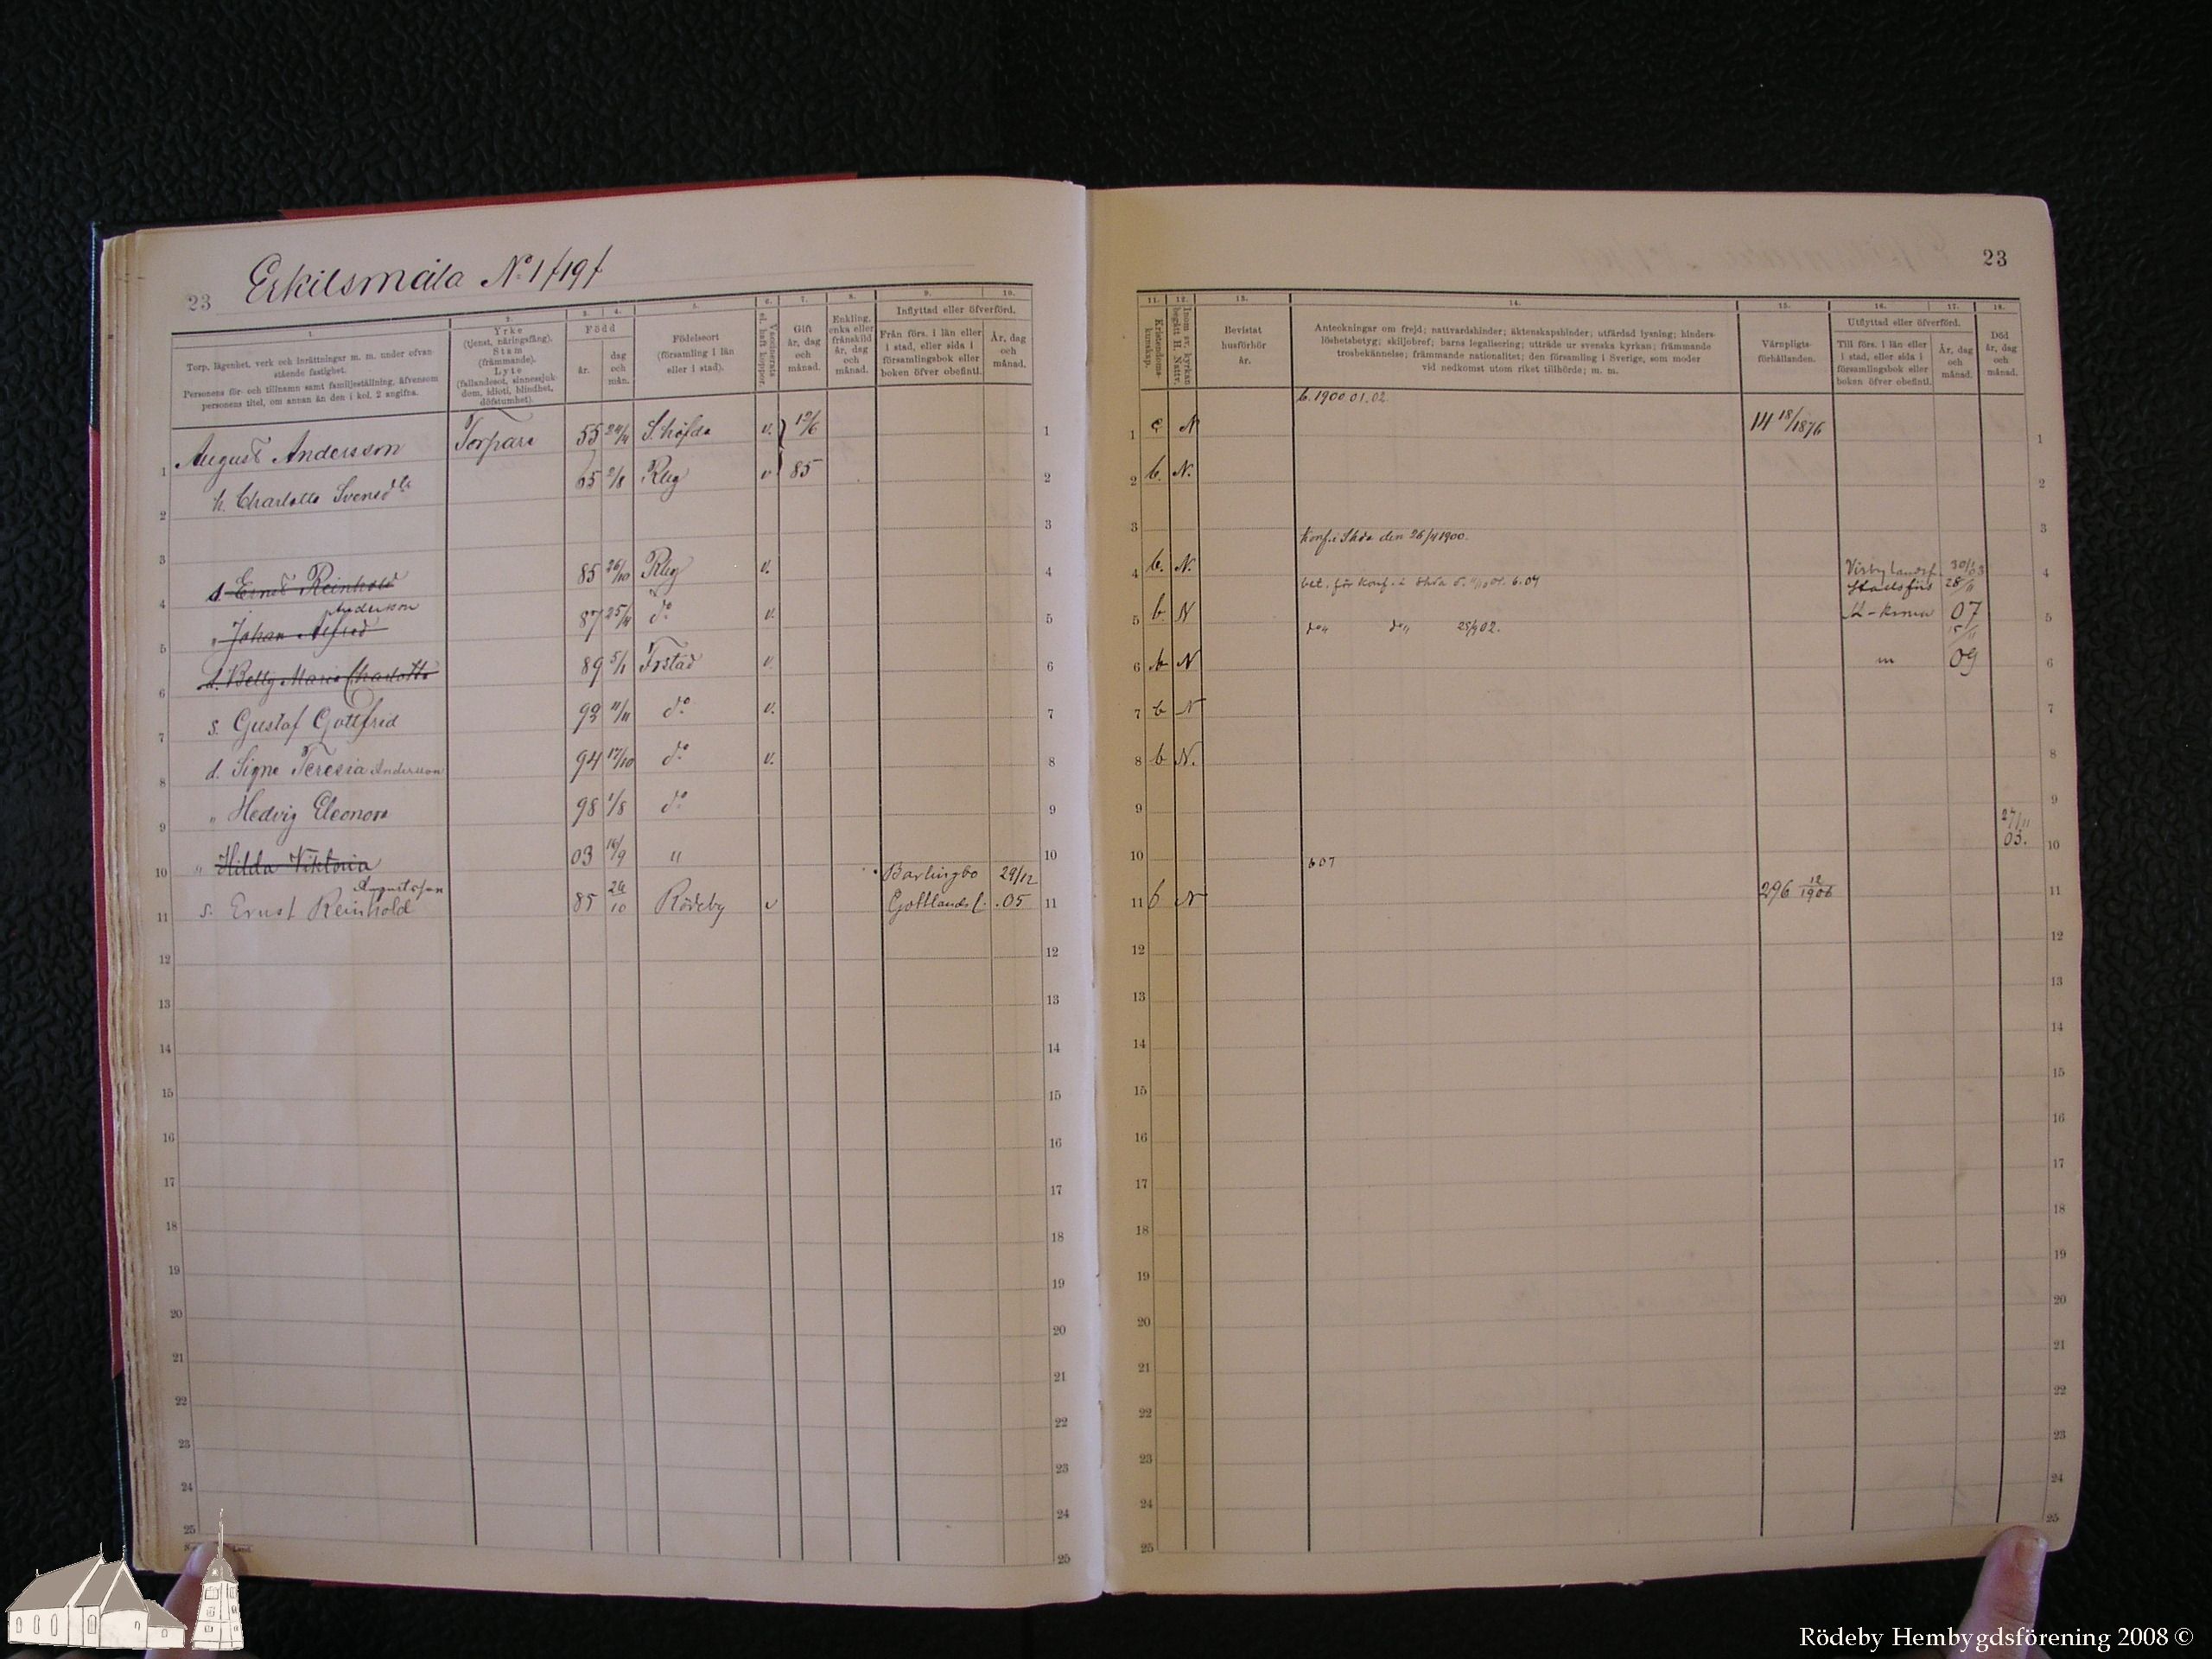 23 Eskilsmåla No 1 /19/
1. 2. 3. 4. 5. 6. 7. 8. 9. 10.
Torp, lägenhet, verk och inrättningar m. m. under ofvanstående fastighet.
Personens för- och tillnamn samt familjeställning, äfvensom
personens titel, om annan än den i kol. 2 angifna.
Yrke
(tjenst, näringsfång).
Stam
(främmande).
Lyte
(fallandesot, sinnessjukdom, idioti, blindhet,
döfstumhet).
Född
år.
dag
och
mån.
Födelseort
(församling i län
eller i stad).
Vaccinerats
el. haft koppor.
Gift
år, dag
och
månad.
Enkling,
enka eller
frånskild
år, dag
och
månad.
Inflyttad eller öfverförd.
Från förs. i län eller
i stad, eller sida i
församlingsbok eller
boken öfver obefintl.
År, dag
och
månad.
1 August Andersson Torpare 55 24/4 S. höfda v. 12/6 1
2 h. Charlotta Svensdtr 65 2/8 Rby v 85 2
3 3
4 s. Ernst Reinhold 85 26/10 Rby v. 4
Andersson
5 " Johan Alfred 87 25/4 do v. 5
6 d. Betty Maria Charlotta 89 5/1 Frstad v. 6
7 s. Gustaf Gottfrid 93 11/11 do v. 7
8 d. Signe Teresia Andersson 94 17/10 do v. 8
9 " Hedvig Eleonora 98 1/8 do 9
10 " Hilda Viktoria 03 16/9 " 10
Augustsson Barlingbo 29/12
11 s. Ernst Reinhold 85 26/10 Rödeby v Gottlands l. .05 11
12 12
13 13
14 14
15 15
16 16
17 17
18 18
19 19
20 20
21 21
22 22
23 23
24 24
25 25
23
11. 12. 13. 14. 15. 16. 17. 18.
Kristendomskunskap.
Inom sv. kyrkan
begått H. Nattv.
Bevistat
husförhör
år.
Anteckningar om frejd; nattvardshinder; äktenskapshinder; utfärdad lysning; hinderslöshetsbetyg; skiljobref; barns legalisering; utträde ur svenska kyrkan; främmande
trosbekännelse; främmande nationalitet; den församling i Sverige, som moder
vid nedkomst utom riket tillhörde; m. m.
Värnpligtsförhållanden.
Utflyttad eller öfverförd.
Till förs. i län eller
i stad, eller sida i
församlingsbok eller
boken öfver obefintl.
År, dag
och
månad.
Död
år, dag
och
månad.
b. 1900.01.02.
1 c N 111 18/1876 1
2 b. N. 2
3 3
Konf. i Skda den 26/4 1900.
4 b. N. Visby landsf. 30/1 03 4
bet. för konf. i Skda 6.04
Stadsförs 28/11
5 b N K-krona 07 5
do do 25/9 02. 15/11
6 b N " 09 6
7 b N 7
8 b N. 8
9 9
27/11
10 03. 10
b 07
11 b N 296 12/1906 11
12 12
13 13
14 14
15 15
16 16
17 17
18 18
19 19
20 20
21 21
22 22
23 23
24 24
25 25
Rödeby Hembygdsförening 2008 ©